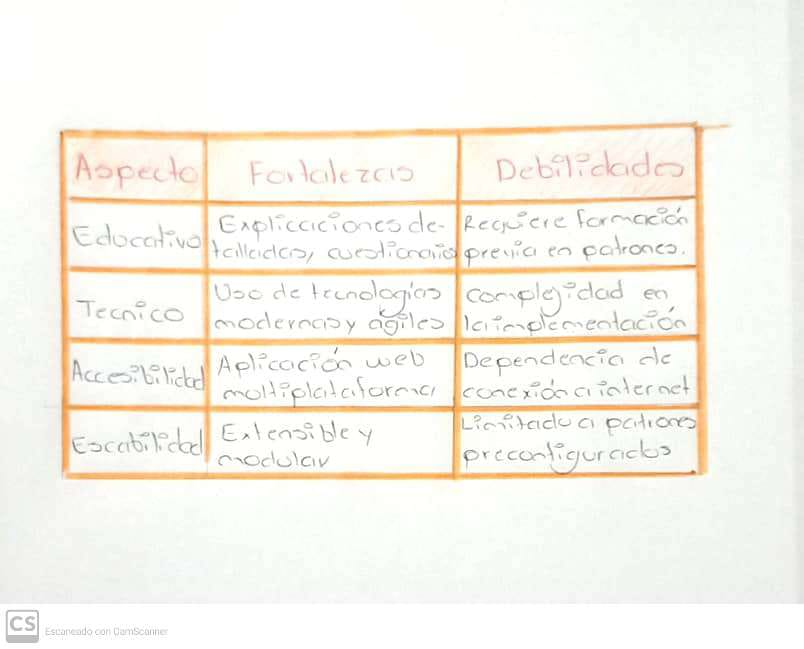 Aspecto Fortalezas Debilidades
Educativo
Explicaciones de-
talladas, cuestionario
Requiere formación
previa en patrones.
Tecnico
Uso de tecnologías
modernas y ágiles
complejidad en
la implementación
Accesibilidad
Aplicación web
multiplataforma
Dependencia de
conexión a internet
Escabilidad
Extensible y
modular
Limitado a patrones
preconfigurados
CS Escaneado con CamScanner